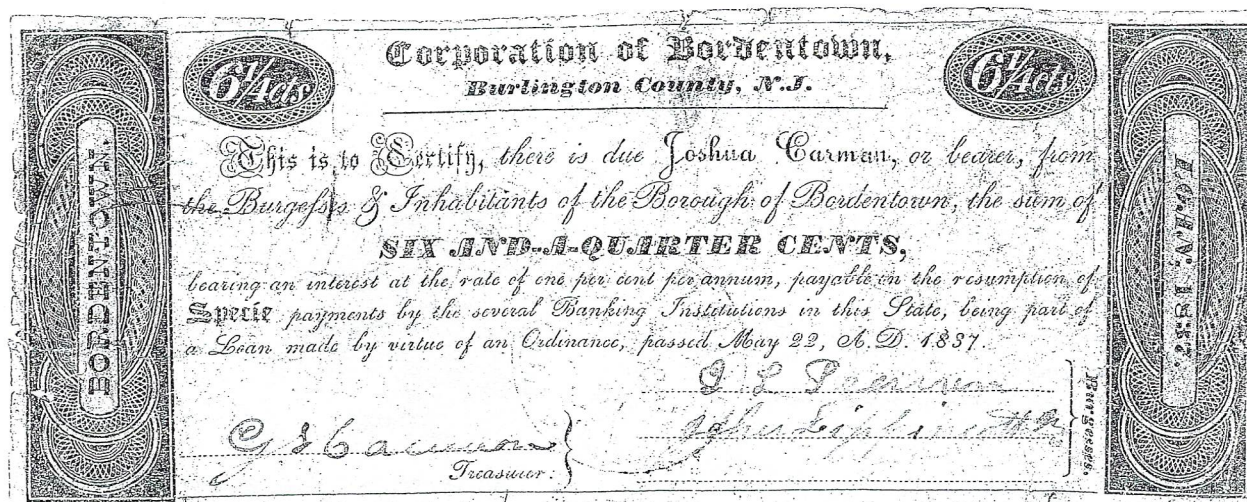 Corporation of Bordentown,
6¼cts
6¼cts
Burlington County, N.J.
This is to Certify, there is due Joshua Carman, or bearer, from
the Burgesses & Inhabitants of the Borough of Bordentown, the sum of
SIX AND-A-QUARTER CENTS,
bearing an interest at the rate of one per cent per annum, payable on the resumption of
Specie payments by the several Banking Institutions in this State, being part of
a Loan made by virtue of an Ordinance, passed May 22, A.D. 1837.
Treasurer.
Burgesses.
BORDENTOWN.
LOAN, 1837.